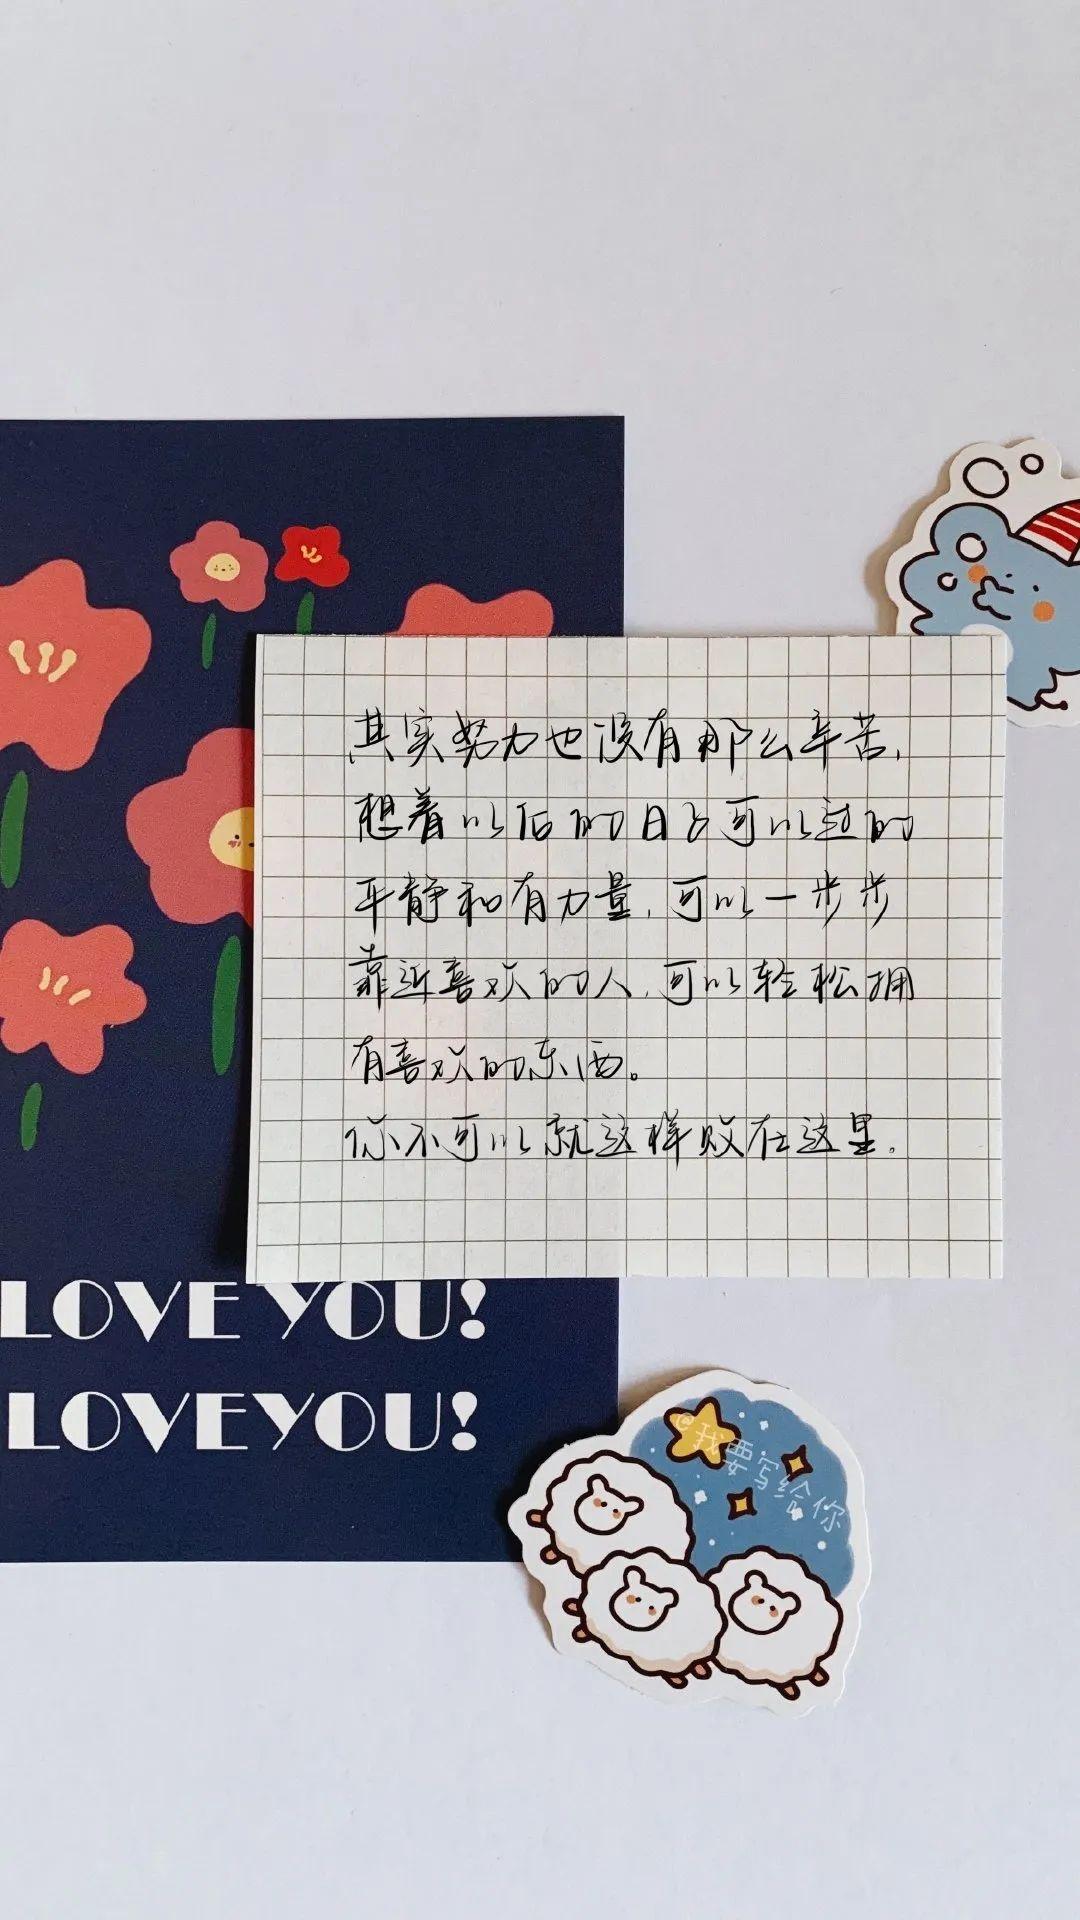 其实努力也没有那么辛苦，
想着以后的日子可以过的
平静和有力量，可以一步步
靠近喜欢的人，可以轻松拥
有喜欢的东西。
你不可以就这样败在这里。
LOVE YOU!
LOVE YOU!
@我要写给你